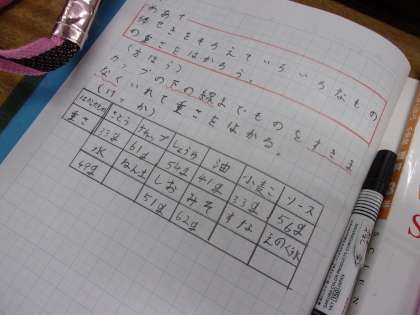 めあて
体せきをそろえていろいろなもの
の重さをはかろう。
(方ほう)
カップの下の線までものをすきま
なくいれて重さをはかる。
(けっか)
はかるもの さとう ケチャップ しょうゆ 油 小麦こ ソース
重さ 33g 61g 54g 41g 33g 56g
水 ねんど しお みそ すな えのぐ水
49g 51g 62g